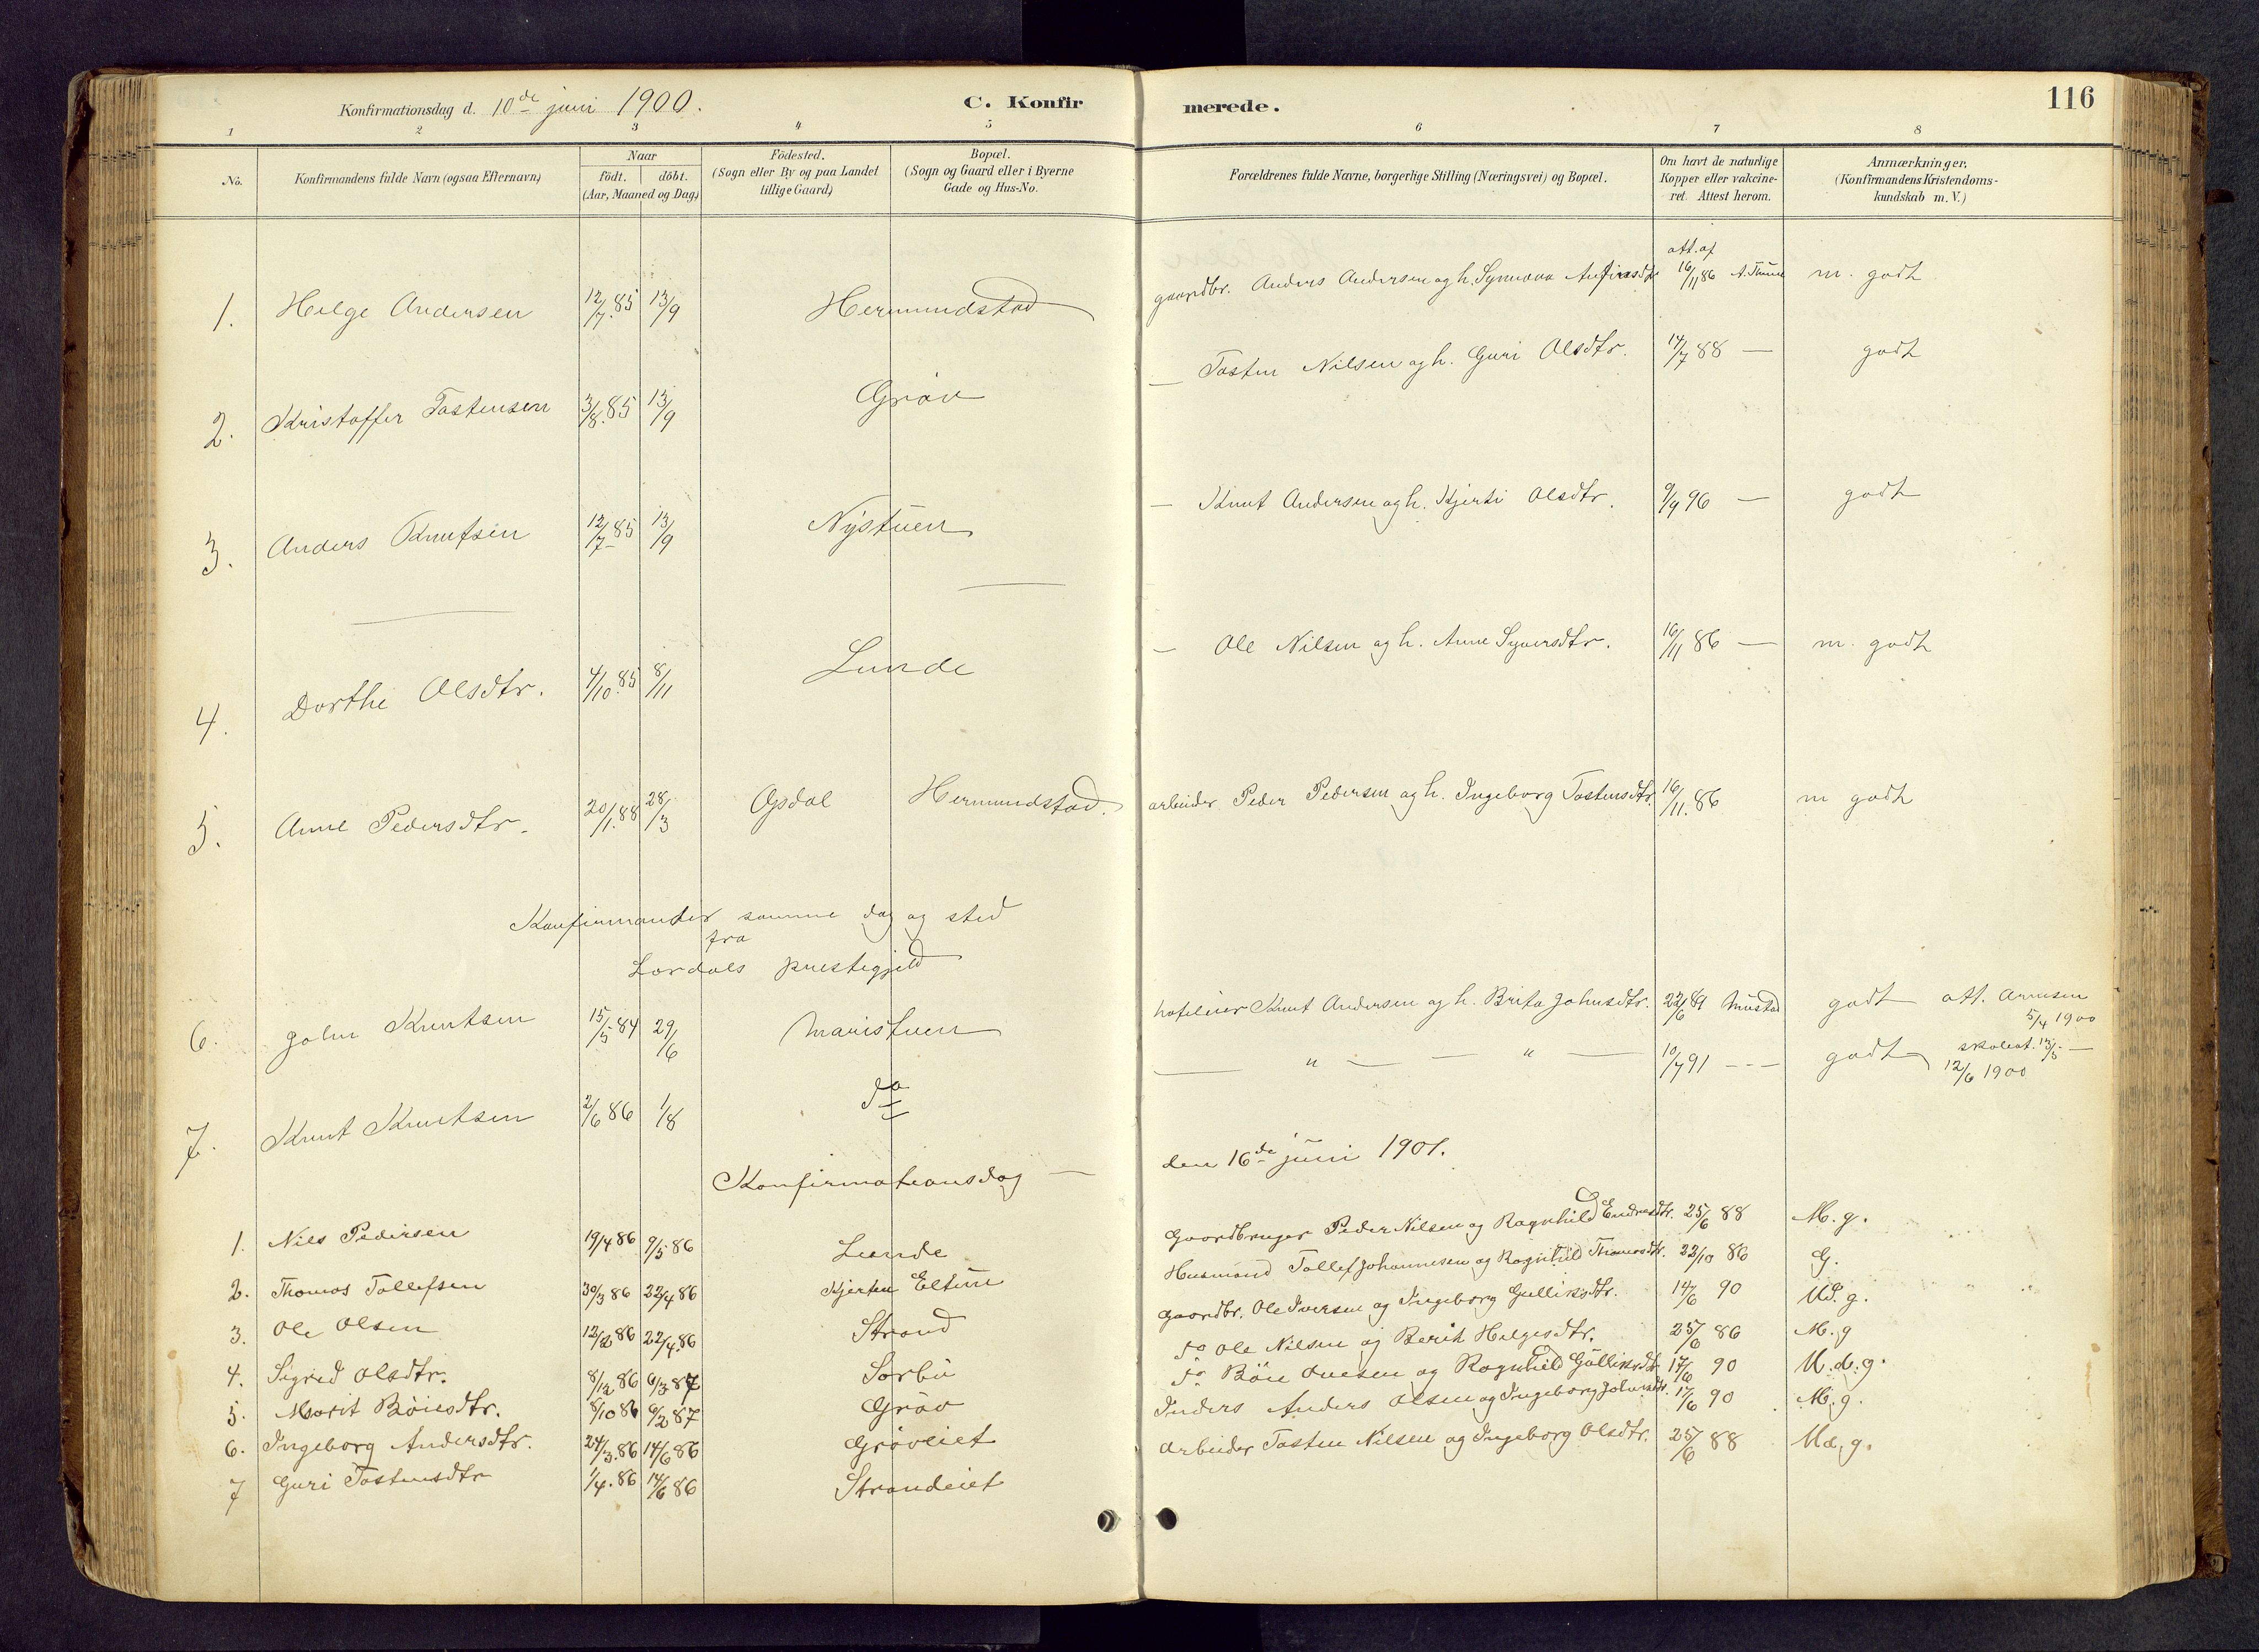 Konfirmationsdag d. 10de juni 1900. C. Konfirmerede. 116
1 2 3 4 5 6 7 8
No. Konfirmandens fulde Navn (ogsaa Efternavn) Naar födt. döbt. (Aar, Maaned og Dag) Födested. (Sogn eller By og paa Landet tillige Gaard) Bopæl. (Sogn og Gaard eller i Byerne Gade og Hus-No. Forældrenes fulde Navne, borgerlige Stilling (Næringsvei) og Bopæl. Om havt de naturlige Kopper eller vakcineret. Attest herom. Anmærkninger, (Konfirmandens Kristendomskundskab m. V.)
1. Helge Andersen 12/7.85 13/9 Hermundstad gaardbr. Anders Andersen og h. Synnøva Anfinsdtr att. af 16/11 86 A. Thune m. godt
2. Kristoffer Tostensen 3/8.85 13/9 Grøv — Tosten Nilsen og h. Guri Olsdtr. 14/7 88 — godt
3. Anders Knutsen 12/7 85 13/9 Nystuen — Knut Andersen og h. Kjerti Olsdtr. 9/9 96 — godt
4. Dorthe Olsdtr. 4/10.85 8/11 Lunde — Ole Nilsen og h. Anne Syversdtr. 16/11 86 — m. godt
5. Anne Pedersdtr. 20/1.88 28/3 Opdal Hermundstad. arbeider Peder Pedersen og h. Ingeborg Tostensdtr. 16/11.86 m godt
Konfirmanter samme dag og sted
fra
Lærdals prestegjeld
6. John Knutsen 15/5 84 29/6 Maristuen hotelier Knut Andersen og h. Brita Johnsdtr. 22/6 89 Mustad godt att. Arnesen 5/4 1900
7. Knut Knutsen 2/6 86 1/8 do — " — — " — 10/7 91 - - - godt skoleat. 13/5 — 12/6 1900
Konfirmationsdag — den 16de juni 1901.
1. Nils Pedersen 19/4 86 9/5 86 Lunde Gaardbruger Peder Nilsen og Ragnhild Endresdtr. 25/6 88 M. g.
2. Thomas Tollefsen 30/3 86 22/4 86 Kjerten Eltun Husmand Tollef Johannesen og Ragnhild Thomasdtr. 22/10 86 G.
3. Ole Olsen 12/2 86 22/4.86 Strand Gaardbr. Ole Iversen og Ingeborg Gulliksdtr. 14/6 90 Md. g.
4. Sigrid Olsdtr. 8/12 86 6/3 87 Sørbu do Ole Nilsen og Berit Helgesdtr. 25/6 86 M. g
5. Marit Böiesdtr. 8/10 86 6/2 87 Grøv do Böie Ovesen og Ragnhild Gulliksdtr. 17/6 90 M. d. g.
6. Ingeborg Andersdtr. 24/3.86 14/6 86 Grøveiet Inders Anders Olsen og Ingeborg Johnsdtr. 17/6 90 M. g.
7 Guri Tostensdtr 1/4.86 14/6 86 Strandeiet Arbeider Tosten Nilsen og Ingeborg Olsdtr. 25/6 88 Md. g.